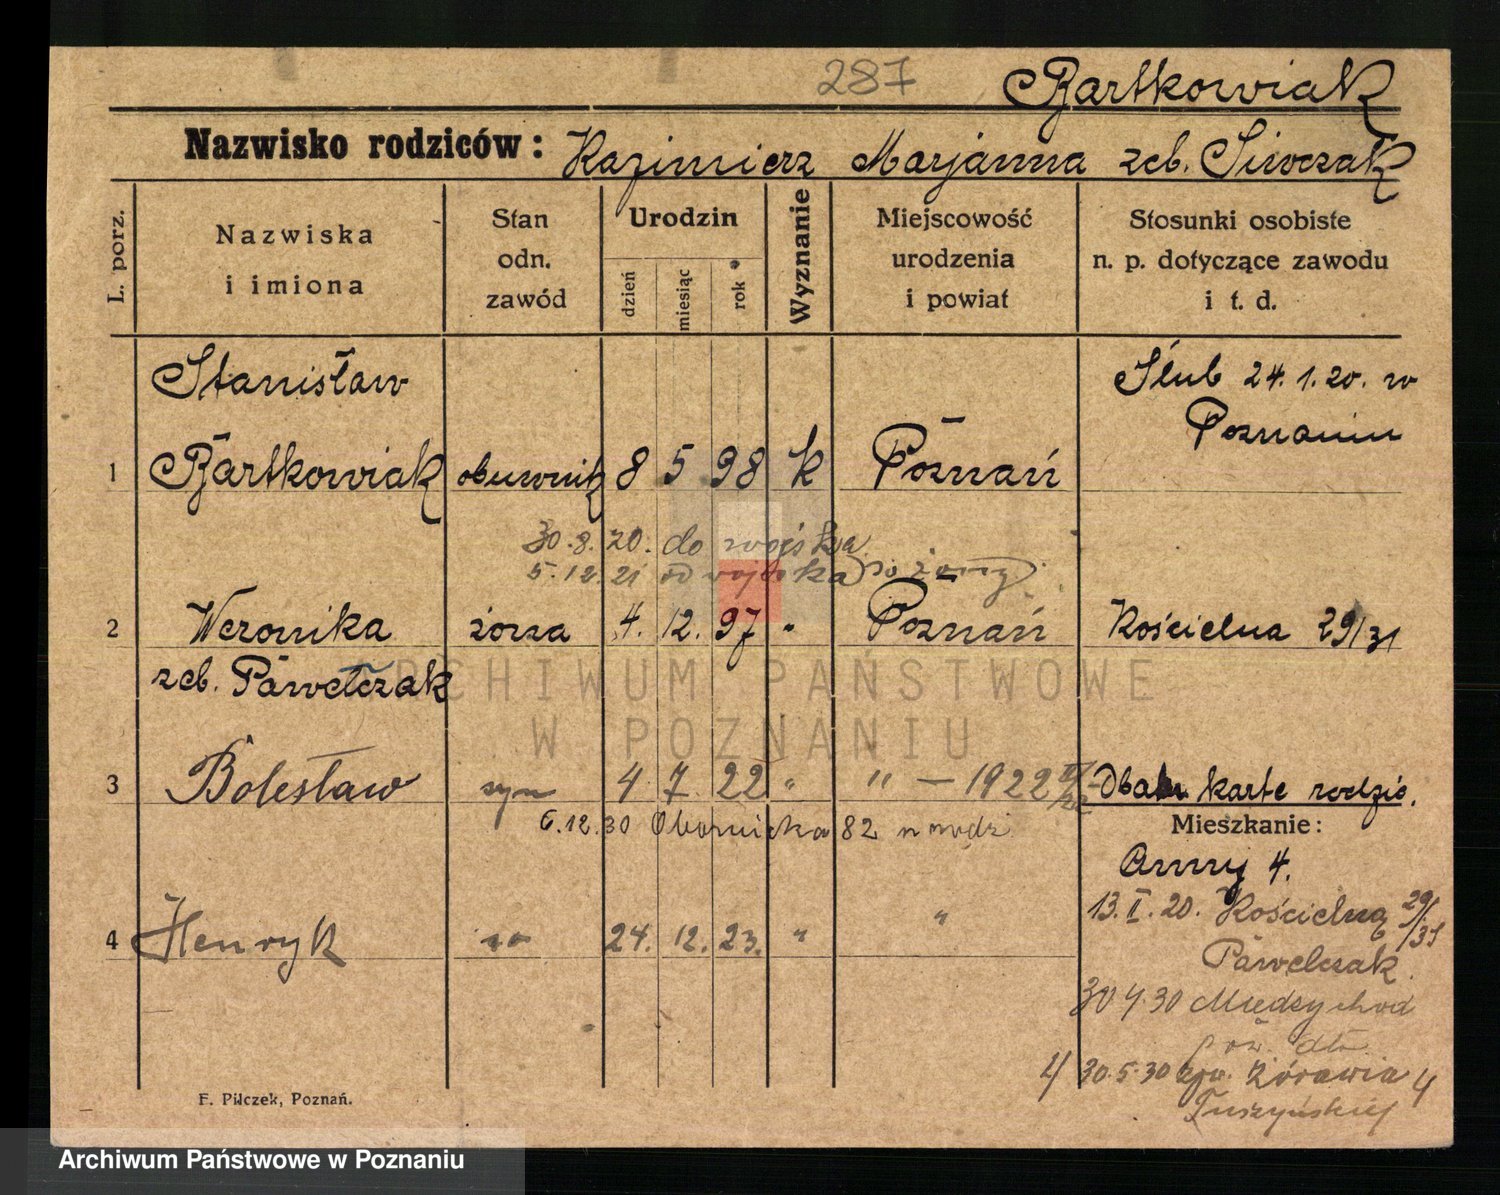 287 Bartkowiak
Nazwisko rodziców: Kazimierz Marjanna zeb. Siwczak
L. porz.
Nazwiska i imiona
Stan odn. zawód
Urodzin
dzień
miesiąc
rok
Wyznanie
Miejscowość urodzenia i powiat
Stosunki osobiste n. p. dotyczące zawodu i t. d.
Stanisław
Ślub 24.1.20. w
Poznaniu
1 Bartkowiak obuwnik 8 5 98 k Poznań
30.8.20. do wojska
5.12.21 od wojska do żony
2 Weronika żona 4. 12. 97 " Poznań Kościelna 29/31
zeb. Pawełczak
ARCHIWUM PAŃSTWOWE
W POZNANIU
3 Bolesław syn 4 7 22 " " — 1922 karte rodzic.
6.12.30 Obornicka 82
Mieszkanie:
4.
13.II.20. Kościelna 29/31
4 Henryk 24. 12. 23. " "
Pawelczak
30 4.30 Międzychod
4 30.5.30 Żórawia 4
Tuszyńskiej
F. Pilczek, Poznań.
Archiwum Państwowe w Poznaniu